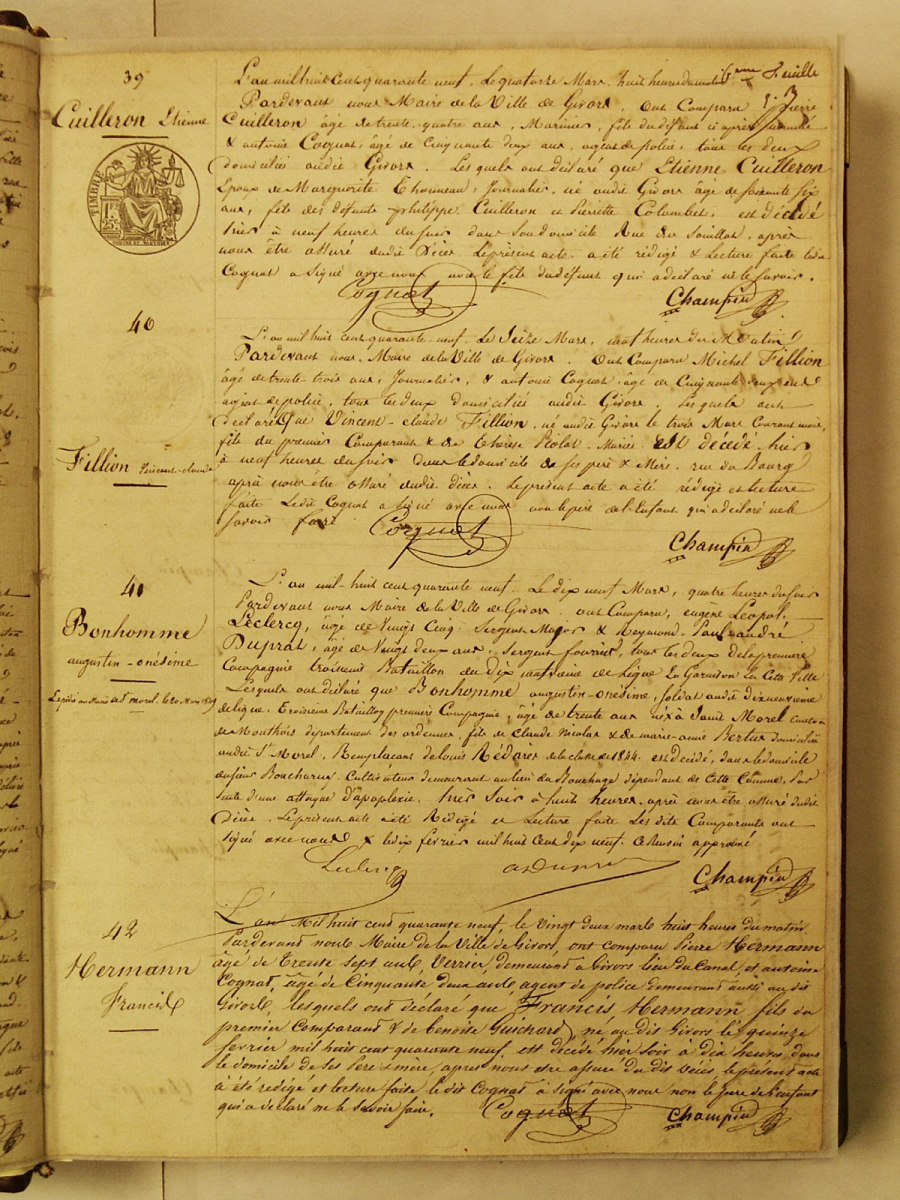 39
Cuilleron Etienne
TIMBRE
1F 25c
L'an mil huit Cent quarante neuf. Le quatorze Mars, huit heures du matin
6eme Feuille
Pardevant nous Maire de la Ville de Givors. Ont Comparu, Pierre
Cuilleron âgé de trente quatre ans, Marinier, fils du défunt ci après nommé
& antoine Cognat, âgé de Cinquante deux ans, agent de police, tous les deux
domiciliés audit Givors. Lesquels ont déclaré que Etienne Cuilleron
Epoux de Marguerite Thonneau, Journalier, né audit Givors âgé de soixante six
ans, fils des défunts philippe Cuilleron et Pierrette Colombet. est décédé
hier à neuf heures du soir dans son domicile Rue du Souillat. après
nous être assuré dudit Décès. Le présent acte a été rédigé & Lecture faite ledit
Cognat a signé avec nous non le fils du défunt qui a déclaré ne le savoir.
Cognat
Champin
40
Fillion Vincent-claude
L'an mil huit cent quarante-neuf. Le Seize Mars, huit heures du Matin
Pardevant nous, Maire de la Ville de Givors. Ont Comparu Michel Fillion
âgé de trente-trois ans, Journalier, & antoine Cognat, âgé de Cinquante deux ans
agent de police, tous les deux domiciliés audit Givors. Lesquels ont
déclaré Que Vincent-claude Fillion, né audit Givors le trois Mars Courant mois,
fils du premier Comparant & de Thérèse Piolat, Mariés. est décédé, hier
à neuf heures du soir Dans le domicile de ses père & Mère, rue du Bourg
après nous être assuré dudit décès. Le présent acte a été rédigé et lecture
faite Ledit Cognat a signé avec nous non le père de l'Enfant qui a déclaré ne le
savoir faire
Cognat
Champin
41
Bonhomme
augustin-onésime
Expédié au Maire de St morel, le 20 Mars 1849
L'an mil-huit cent quarante neuf. Le dix neuf Mars, quatre heures du soir
Pardevant nous Maire de la Ville de Givors. ont Comparu, eugène Léopol-
Leclercq, âgé de Vingt Cinq. Sergent Major & Reymond-Paul-andré
Duprat, âgé de Vingt deux ans, Sergent fourrier, tous les deux de la première
Compagnie troisième Bataillon du Dix neuvième de Ligne En Garnison en Cette Ville
Lesquels ont déclaré que Bonhomme augustin-onésime, soldat audit dix neuvième
de ligne, Troisième Bataillon première Compagnie, âgé de trente ans né à Saint Morel Canton
de Monthois département des ardennes, fils de Claude Nicolas & de marie-anne Bertus domiciliés
audit St Morel, Remplaçant de louis Rédares de la classe de 1844. est Décédé, dans le domicile
du sieur Boucharin. Cultivateur demeurant au lieu du Bouchage dépendant de Cette Commune. Par
suite d'une attaque d'apoplexie. hier Soir à huit heures. après nous être assuré dudit
Décès. Le présent acte a été Rédigé et Lecture faite Les dits Comparants ont
signé avec nous & ledix février mil huit Cent dix neuf. Ce Renvoi approuvé
Leclercq
Champin
42
Hermann
Francis
L'an Mil huit cent quarante neuf, le vingt deux mars huit heures du matin.
Pardevant nous Maire de la Ville de Givors, ont comparu Pierre Hermann
âgé de trente sept ans, verrier, demeurant à Givors lieu du Canal, et antoine
Cognat, âgé de Cinquante deux ans, agent de police demeurant aussi au dit
Givors, lesquels ont déclaré que Francis Hermann fils du
premier comparant & de benoite Guichard, né au dit Givors le quinze
fevrier mil huit cent quarante neuf. est décédé hier soir à dix heures, dans
le domicile de ses Père & mère, après nous etre assuré du dit décès, le présent acte
a été rédigé et lecture faite le dit Cognat a signé avec nous non le père de l'enfant
qui a déclaré ne le savoir faire.
Cognat
Champin